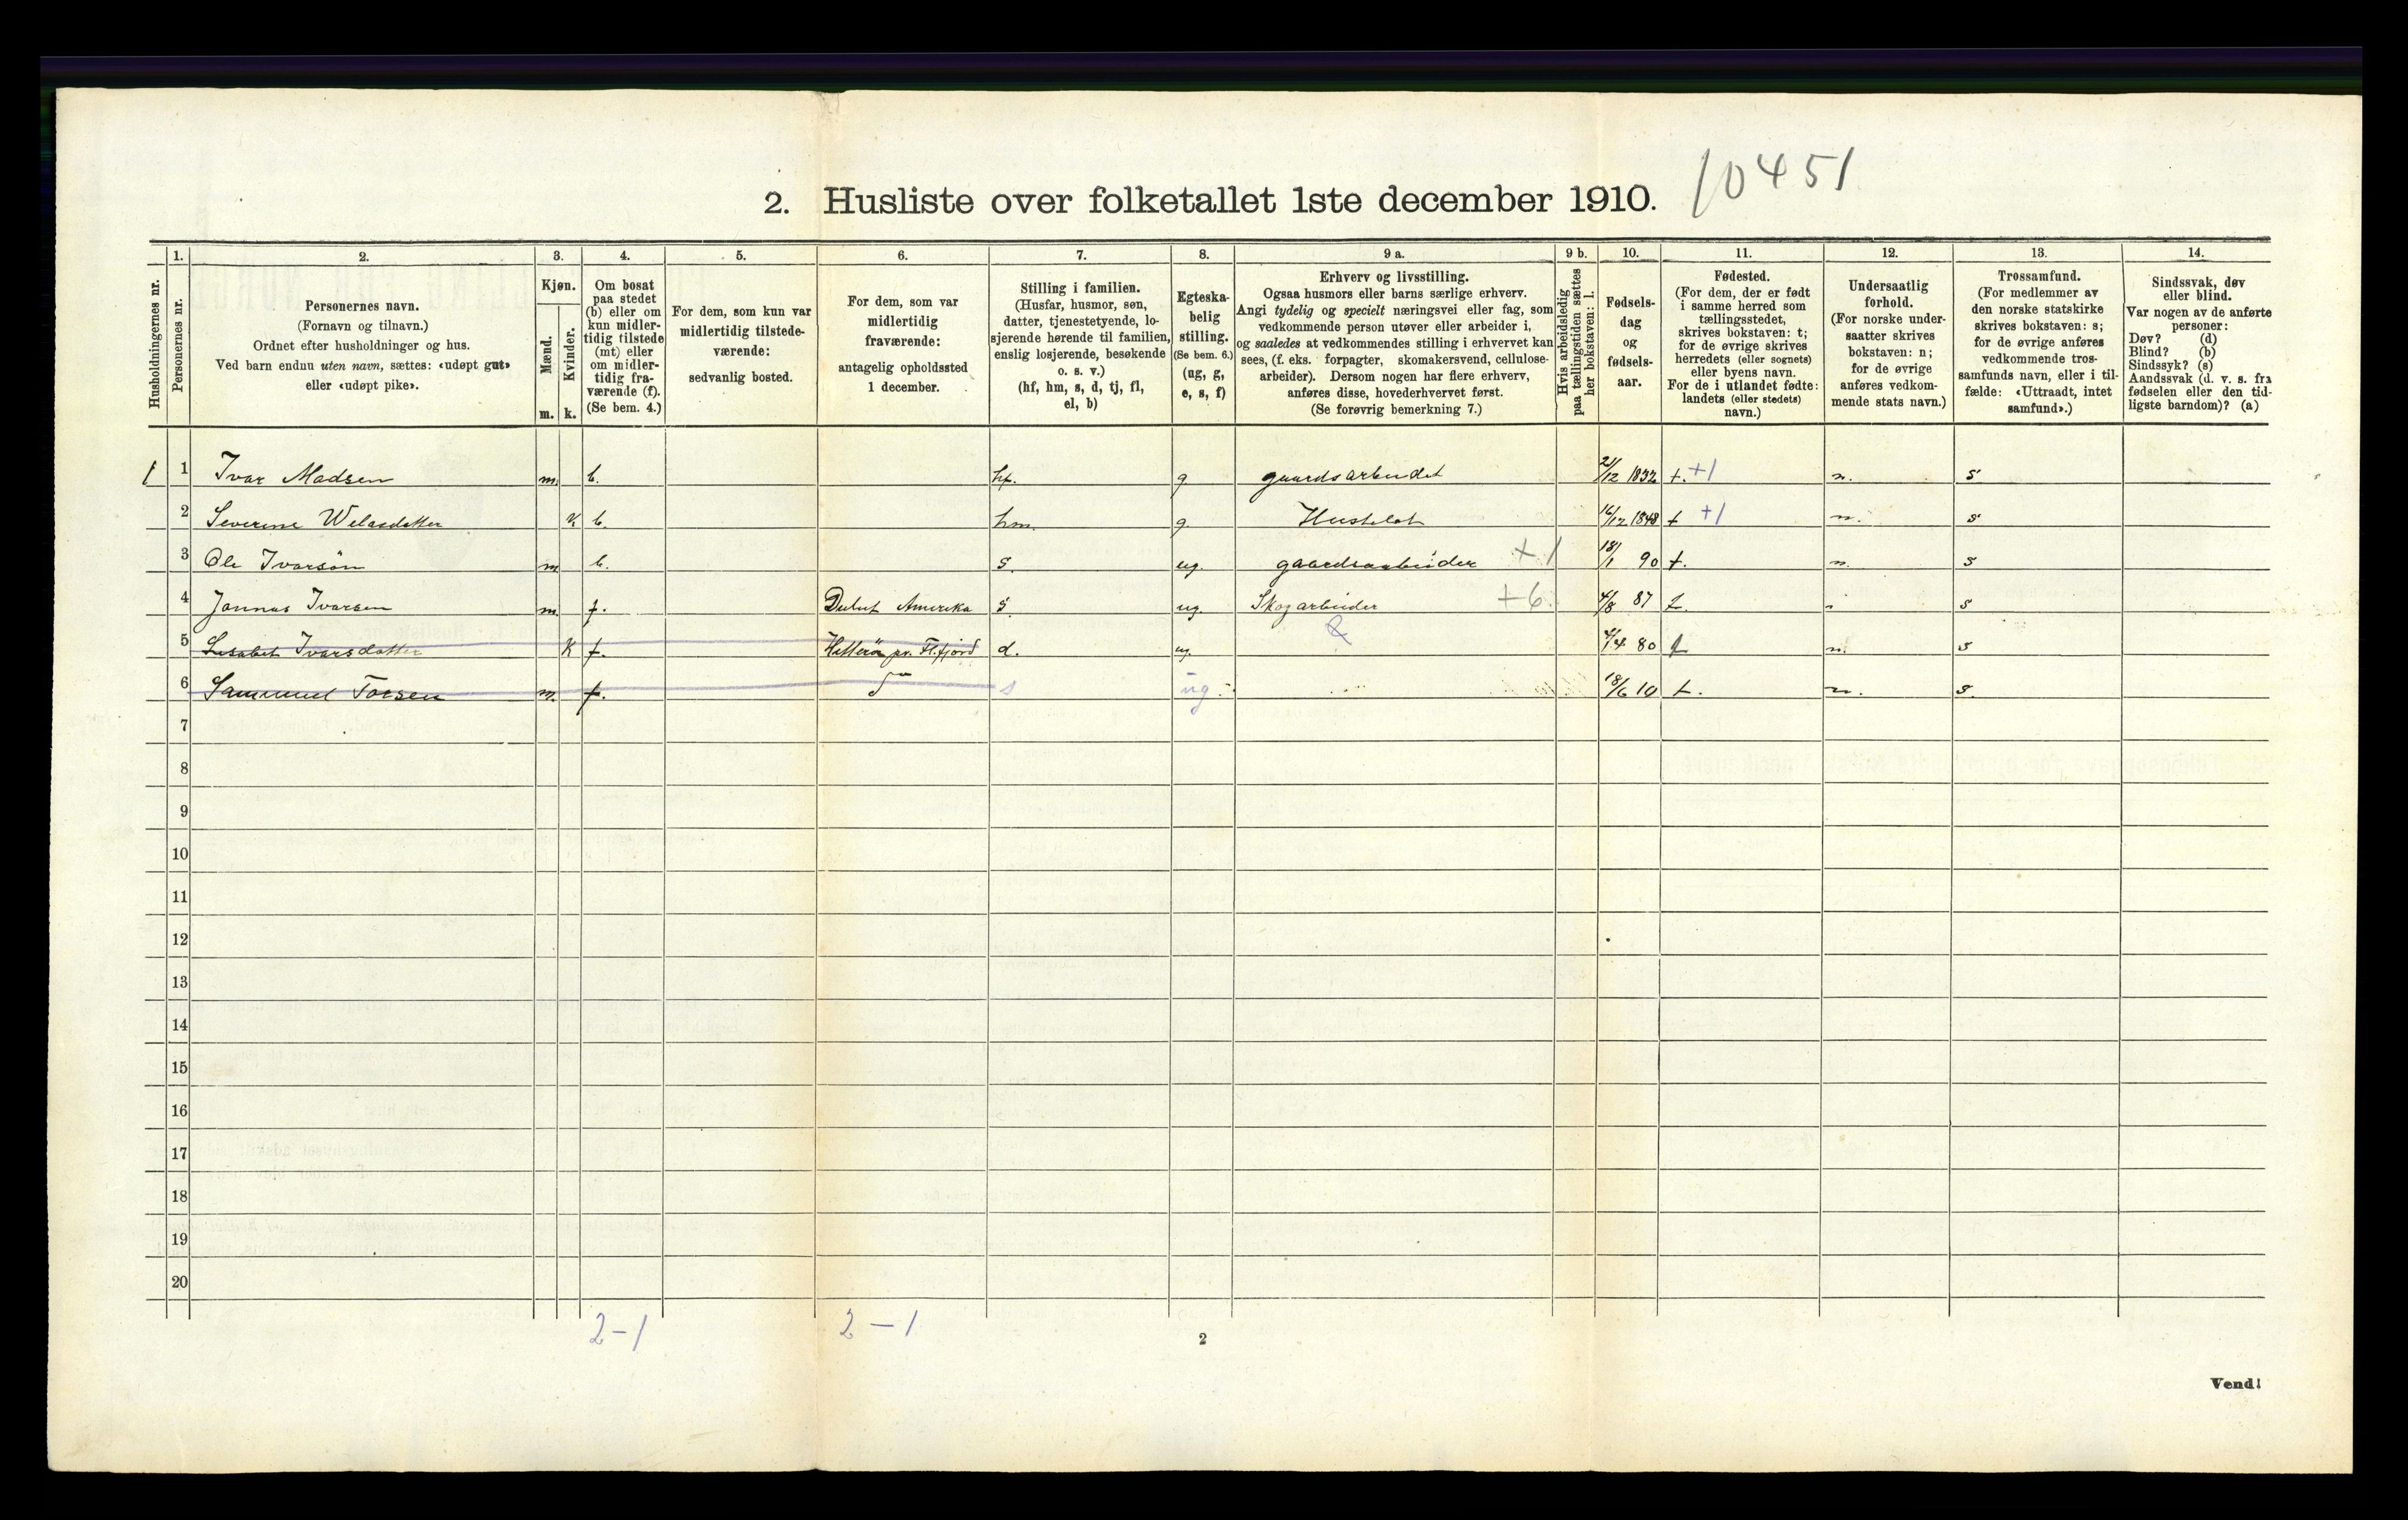 10451
2. Husliste over folketallet 1ste december 1910.
1. 2. 3. 4. 5. 6. 7. 8. 9 a. 9 b. 10. 11. 12. 13. 14.
Husholdningernes nr.
Personernes nr.
Personernes navn.
(Fornavn og tilnavn.)
Ordnet efter husholdninger og hus.
Ved barn endnu uten navn, sættes: «udøpt gut»
eller «udøpt pike».
Kjøn.
Mænd.
m.
Kvinder.
k.
Om bosat
paa stedet
(b) eller om
kun midler-
tidig tilstede
(mt) eller
om midler-
tidig fra-
værende (f).
(Se bem. 4.)
For dem, som kun var
midlertidig tilstede-
værende:
sedvanlig bosted.
For dem, som var
midlertidig
fraværende:
antagelig opholdssted
1 december.
Stilling i familien.
(Husfar, husmor, søn,
datter, tjenestetyende, lo-
sjerende hørende til familien,
enslig losjerende, besøkende
o. s. v.)
(hf, hm, s, d, tj, fl,
el, b)
Egteska-
belig
stilling.
(Se bem. 6.)
(ug, g,
e, s, f)
Erhverv og livsstilling.
Ogsaa husmors eller barns særlige erhverv.
Angi tydelig og specielt næringsvei eller fag, som
vedkommende person utøver eller arbeider i,
og saaledes at vedkommendes stilling i erhvervet kan
sees, (f. eks. forpagter, skomakersvend, cellulose-
arbeider). Dersom nogen har flere erhverv,
anføres disse, hovederhvervet først.
(Se forøvrig bemerkning 7.)
Hvis arbeidsledig
paa tællingstiden sættes
her bokstaven: l.
Fødsels-
dag
og
fødsels-
aar.
Fødested.
(For dem, der er født
i samme herred som
tællingsstedet,
skrives bokstaven: t;
for de øvrige skrives
herredets (eller sognets)
eller byens navn.
For de i utlandet fødte:
landets (eller stedets)
navn.)
Undersaatlig
forhold.
(For norske under-
saatter skrives
bokstaven: n;
for de øvrige
anføres vedkom-
mende stats navn.)
Trossamfund.
(For medlemmer av
den norske statskirke
skrives bokstaven: s;
for de øvrige anføres
vedkommende tros-
samfunds navn, eller i til-
fælde: «Uttraadt, intet
samfund».)
Sindssvak, døv
eller blind.
Var nogen av de anførte
personer:
Døv? (d)
Blind? (b)
Sindssyk? (s)
Aandssvak (d. v. s. fra
fødselen eller den tid-
ligste barndom)? (a)
1 1 Ivar Madsen m. b. hf. g gaardsarbeidet 21/12 1832 t. +1 n. s
2 Severine Welasdatter K b. hm. g. Husstelet 16/12 1848 t +1 n. s
3 Ole Ivarsön m b. s. ug. gaardsarbeider +1 18/1 90 t. n. s
4 Jonnas Ivarsen m. f. Dulut Amerika s. ug. Skogarbeider +6. 4/8 87 t. s
5 Lisabet Ivarsdatter K f. Hitterö pr. Fl.fjord d. ug. 4/4 80 t n. s
6 Sammuel Torsen m. f. s ug. 18/6 10 t. n. s.
7
8
9
10
11
12
13
14
15
16
17
18
19
20
2-1 2-1
2
Vend!